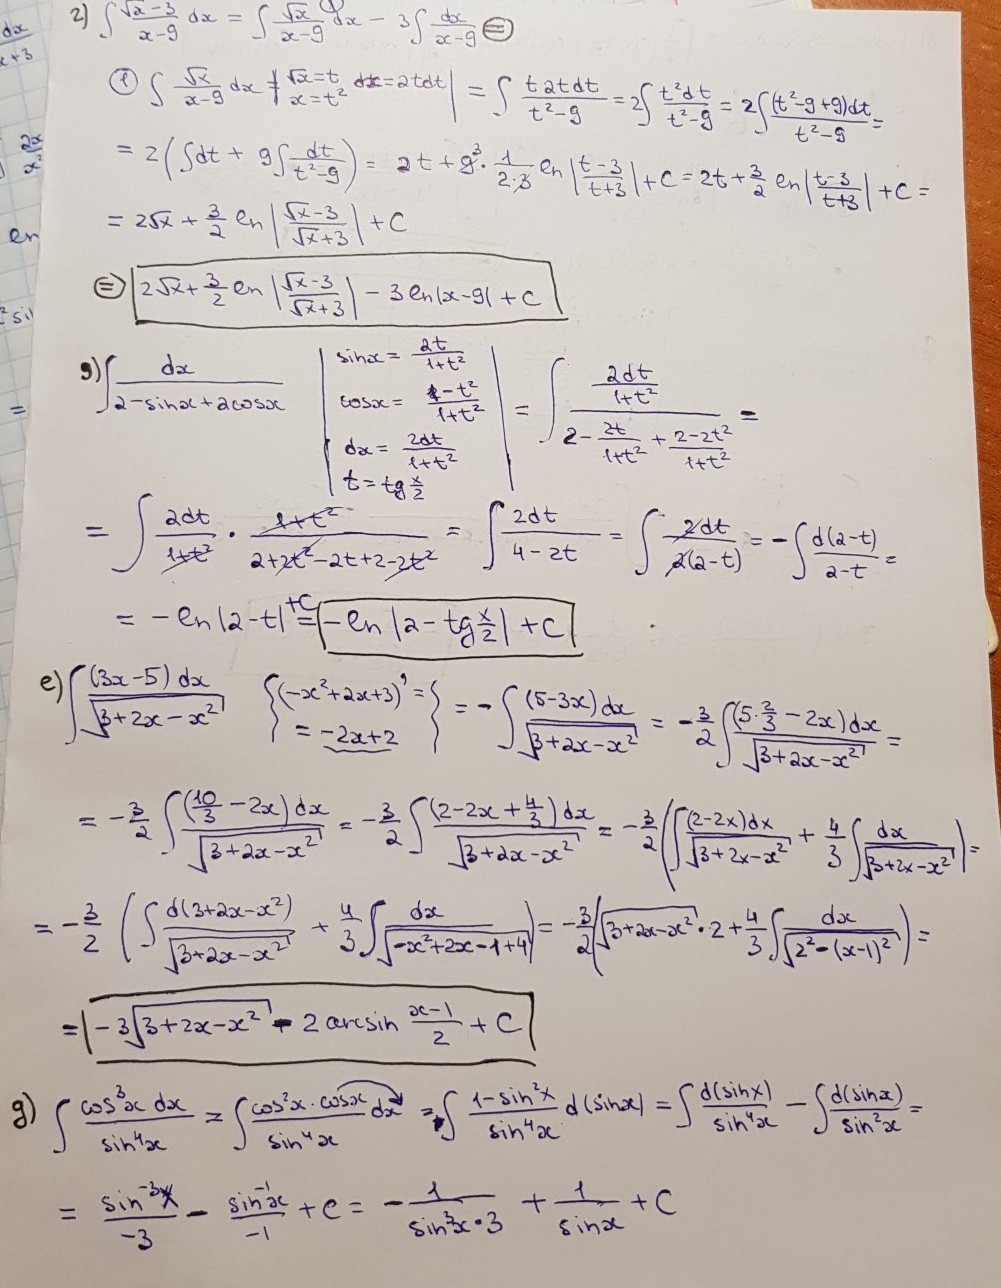 dx
x+3
2x
x²
en
² sin
=
2) ∫ (√x-3)/(x-9) dx = ∫ √x/(x-9) dx - 3∫ dx/(x-9) (=)
① ∫ √x/(x-9) dx = | √x=t x=t² dx=2tdt | = ∫ t2tdt/(t²-9) = 2∫ t²dt/(t²-9) = 2∫ (t²-9+9)dt/(t²-9) =
= 2(∫dt + 9∫ dt/(t²-9)) = 2t + 9³ · 1/(2·3) ln |(t-3)/(t+3)| + C = 2t + 3/2 ln |(t-3)/(t+3)| + C =
= 2√x + 3/2 ln |(√x-3)/(√x+3)| + C
(=) 2√x + 3/2 ln |(√x-3)/(√x+3)| - 3 ln|x-9| + C
g) ∫ dx/(2-sinx+2cosx) | sinx = 2t/(1+t²) cosx = (1-t²)/(1+t²) dx = 2dt/(1+t²) t = tg x/2 | = ∫ (2dt/(1+t²))/(2 - 2t/(1+t²) + (2-2t²)/(1+t²)) =
= ∫ 2dt/(1+t²) · (1+t²)/(2+2t²-2t+2-2t²) = ∫ 2dt/(4-2t) = ∫ 2dt/(2(2-t)) = -∫ d(2-t)/(2-t) =
= -ln|2-t| +C = -ln |2-tg x/2| + C
e) ∫ (3x-5)dx/√(3+2x-x²) {(-x²+2x+3)' = = -2x+2} = -∫ (5-3x)dx/√(3+2x-x²) = -3/2 ∫ (5·2/3 - 2x)dx/√(3+2x-x²) =
= -3/2 ∫ (10/3 - 2x)dx/√(3+2x-x²) = -3/2 ∫ (2-2x+4/3)dx/√(3+2x-x²) = -3/2 (∫ (2-2x)dx/√(3+2x-x²) + 4/3 ∫ dx/√(3+2x-x²)) =
= -3/2 (∫ d(3+2x-x²)/√(3+2x-x²) + 4/3 ∫ dx/√(-x²+2x-1+4)) = -3/2 (√(3+2x-x²) · 2 + 4/3 ∫ dx/√(2²-(x-1)²)) =
= -3√(3+2x-x²) - 2 arcsin (x-1)/2 + C
g) ∫ cos³x dx/sin⁴x = ∫ cos²x·cosx/sin⁴x dx = ∫ (1-sin²x)/sin⁴x d(sinx) = ∫ d(sinx)/sin⁴x - ∫ d(sinx)/sin²x =
= sin⁻³x/-3 - sin⁻¹x/-1 + C = -1/(sin³x·3) + 1/sinx + C